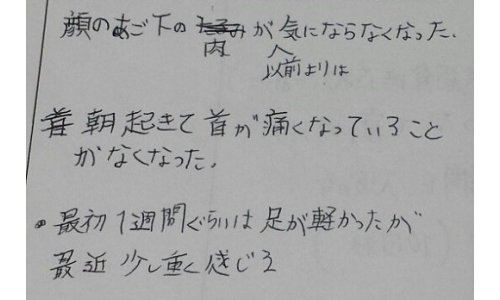 顔のあご下の肉が気にならなくなった.
以前よりは
朝起きて首が痛くなっていること
がなくなった.
・最初1週間ぐらいは足が軽かったが
最近少し重く感じる